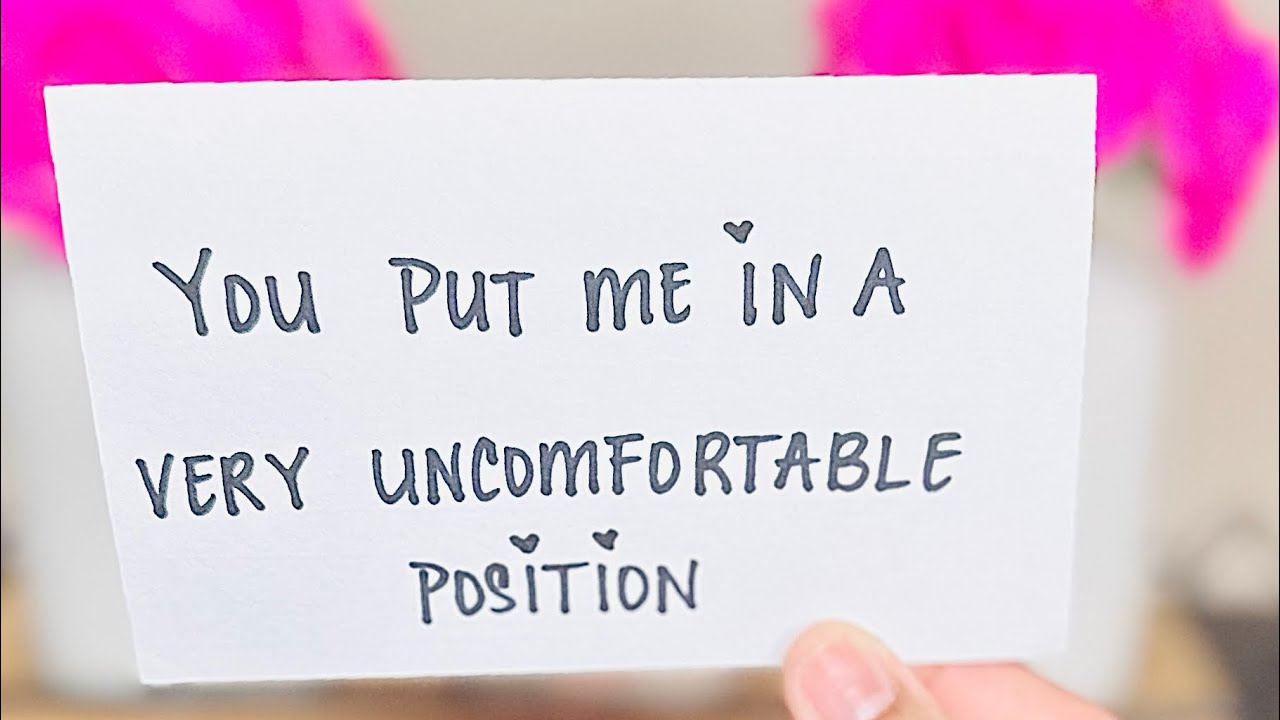 YOU PUT ME IN A
VERY UNCOMFORTABLE
POSITION